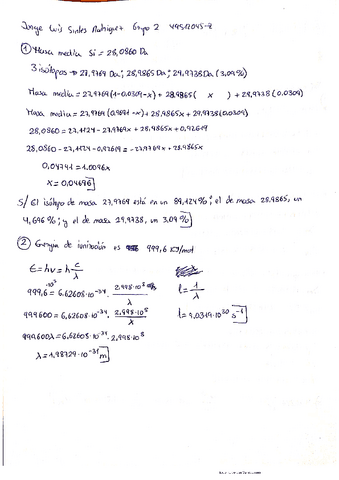 Jorge Luis Sintes Rodríguez Grupo 2
① Masa media Si = 28,0860 Da
3 isótopos → 27,9769 Da; 28,9865 Da; 29,9738 Da (3,09%)
Masa media = 27,9769(1-0,0309-x) + 28,9865( x ) + 29,9738(0,0309)
Masa media = 27,9769(0,9691-x) + 28,9865x + 29,9738(0,0309)
28,0860 = 27,1124 - 27,9769x + 28,9865x + 0,92619
28,0860 - 27,1124 - 0,92619 = -27,9769x + 28,9865x
0,04741 = 1,0096x
x = 0,04696
S/ El isótopo de masa 27,9769 está en un %; el de masa 28,9865, un
4,696%; y el de masa 29,9738, un 3,09%
② Energía de ionización es 999,6 KJ/mol
E = hν = h c/λ
999,6·10³ = 6,62608·10⁻³⁴ · 2,998·10⁸/λ
l = 1/λ
999600 = 6,62608·10⁻³⁴ · 2,998·10⁸/λ
999600λ = 6,62608·10⁻³⁴ · 2,998·10⁸
λ = 1,98729·10⁻³¹ m